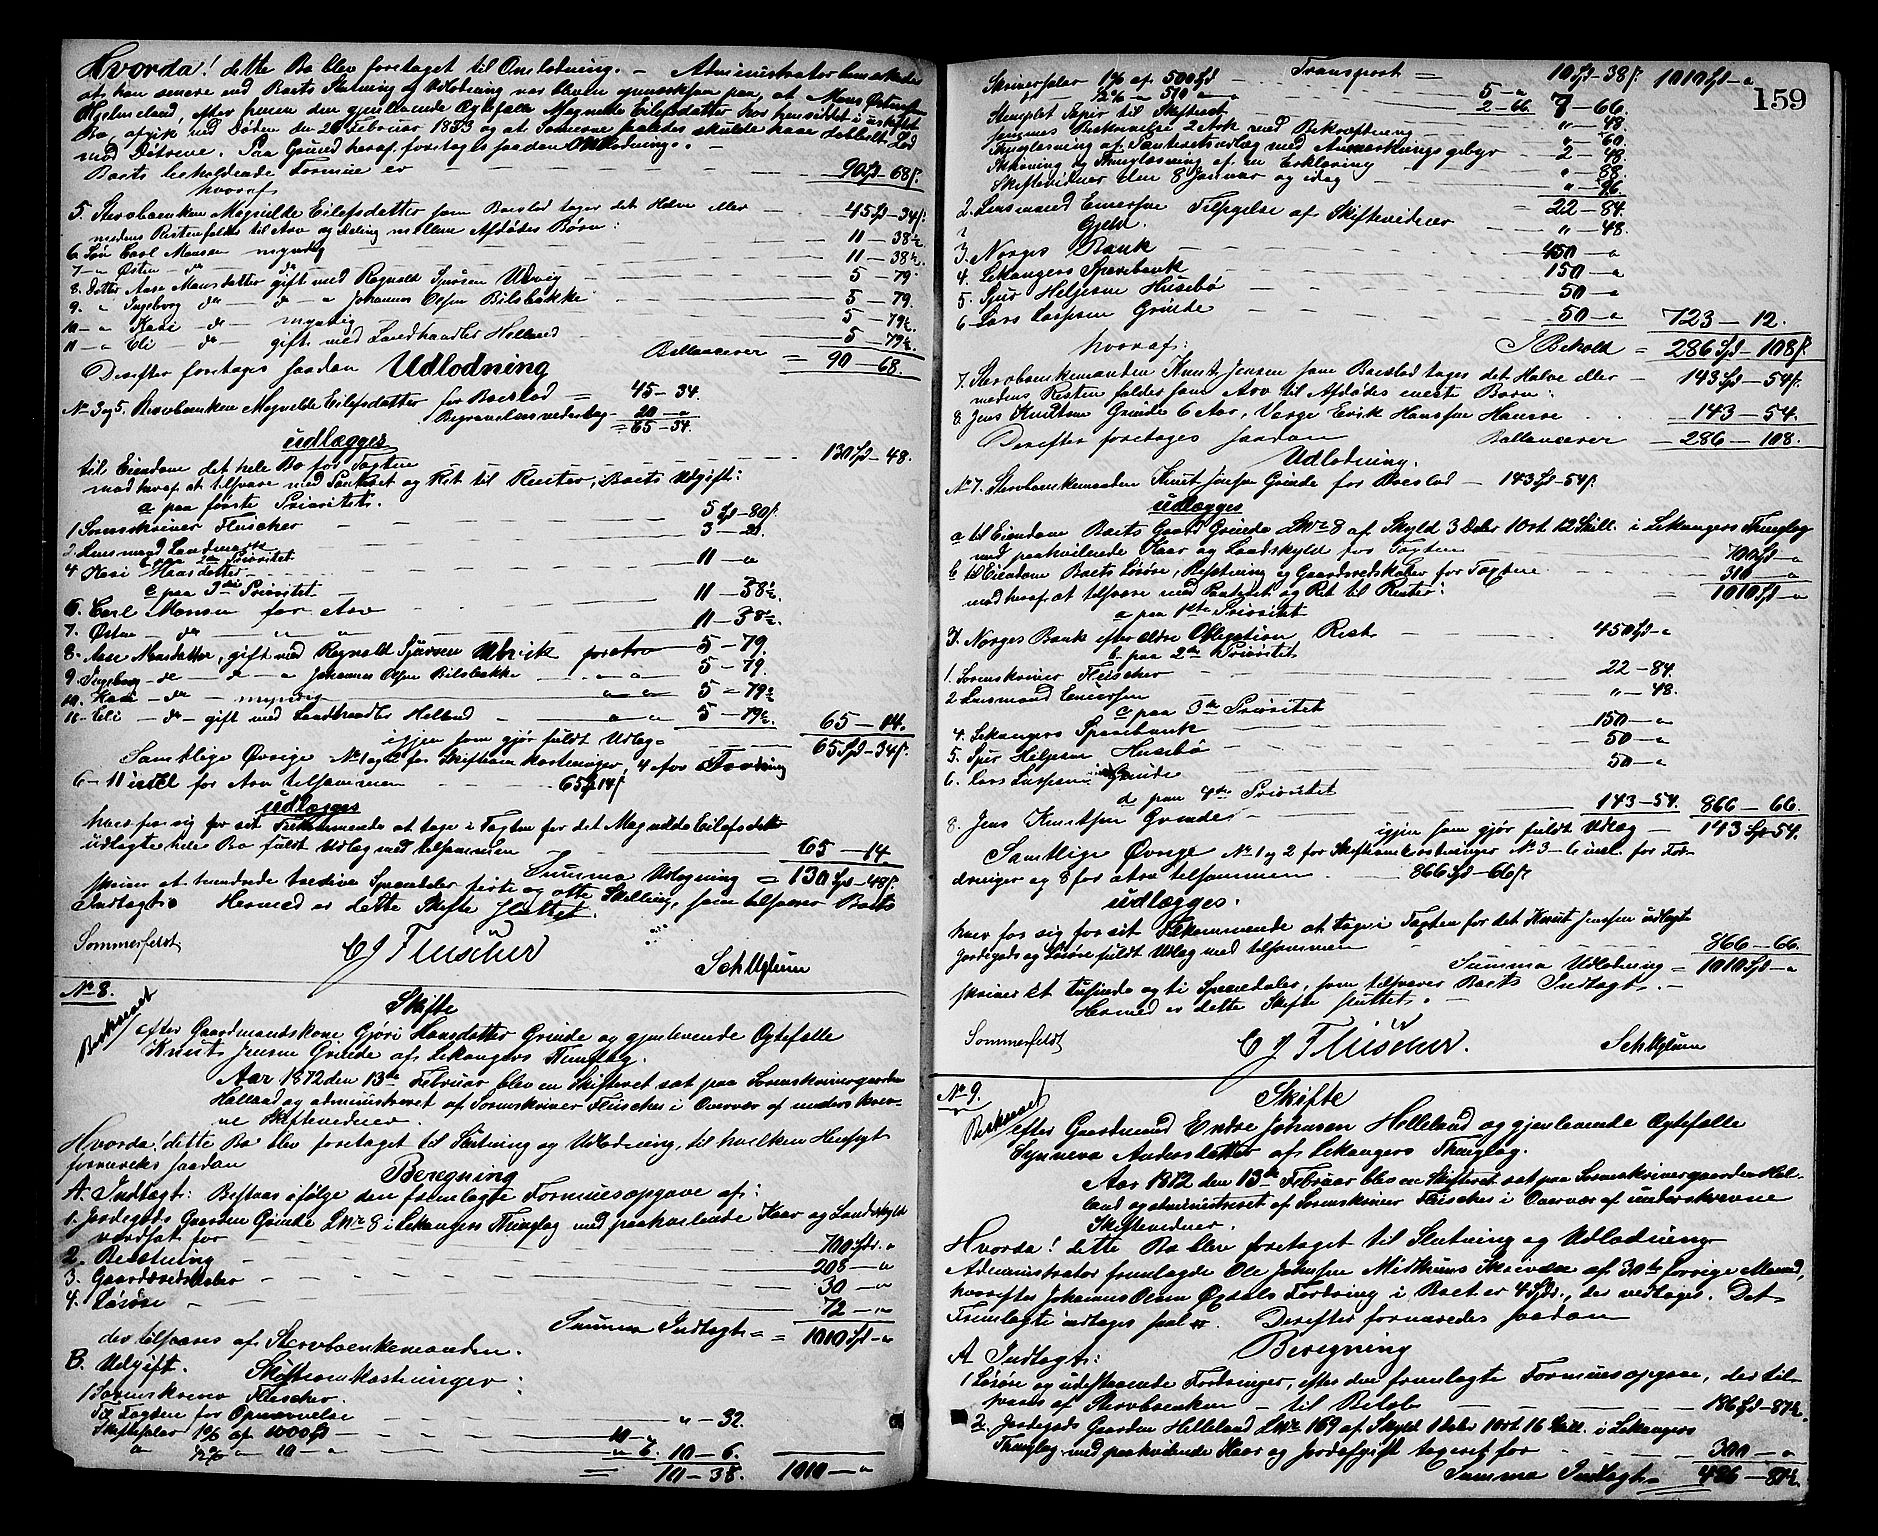 Hvorda! dette Bo blev foretaget til Omlodning. — Administrator bemærkede
at han senere end Boets Slutning og Udlodning var bleven opmærksom paa, at Mons Østensen
Hjelmeland, efter hvem den gjenlevende Ægtefælle Magnilde Eilefsdatter har hensiddet i uskiftet
Bo, afgik ved Døden den 20 Februar 1853 og at Sønnerne saaledes skulde have dobbelt Lod
mod Døtrene. Paa Grund heraf foretages saadan Omlodning. —
Boets beholdende Formue er — 90 Spd — 68 s.
hvoraf
5. Stervboenken Magnilde Eilefsdatter som Boeslod tager det Halve eller — 45 Spd — 34 s.
medens Resten falder til Arv og Deling mellem Afdødes Børn:
6. Søn Carl Monsen myndig — 11 — 38½
7 — " Østen — do — do — 11 — 38½
8. Datter Aase Monsdatter gift med Ragnald Sjursen Udvig — 5 — 79
9. " Ingeborg do — do — " Johannes Olsen Bilsbakke — 5 — 79.
10 — " Kari — do — myndig — 5 — 79½
11 — " Eli — do — gift med Landhandler Helland — 5 — 79½
Ballancerer = 90 — 68.
Derefter foretages saadan Udlodning
No 3 og 5. Stervboenken Magnilde Eilefsdatter for Boeslod = 45 — 34.
Begravelsesvederlag — 20 — "
= 65 — 34.
udlægges
til Eiendom det hele Bo for Taxten — 130 Spd — 48.
mod heraf at tilsvare med Panteret og Ret til Renter, Boets Udgift:
a paa første Prioritet.
1 Sorenskriver Fleischer — 5 Spd — 80 s.
2. Lensmand Landmark — 3 — 20
b paa 2den Prioritet
4 Kari Monsdatter — 11 — "
c paa 3die Prioritet
6. Carl Monsen for Arv — 11 — 38½
7. Østen — do — " " — 11 — 38½
8. Aase Monsdatter, gift med Ragnald Sjursen Udvik for Arv — 5 — 79.
9. Ingeborg — do — do — " Johannes Olsen Bilsbakke — " — 5 — 79
10. Kari — do — myndig — " " 5 — 79½
11. Eli — do — gift med Landhandler Helland — " " 5 — 79½. 65 — 14.
igjen som gjør fuldt Udlæg — 65 Spd — 34 s.
Samtlige Øvrige No 1 og 2 for Skifteomkostninger, 4 for Fordring
6 — 11 incl for Arv tilsammen — 65 Spd 14 s
udlægges
hver for sig for sit Tilkommende at tage i Taxten for det Magnilde Eilefsdatter
udlagte hele Bo fuldt Udlæg med tilsammen — 65 — 14.
Summa Udlodning = 130 Spd — 48 s.
skriver et hundrede tredive Speciedaler firti og otte Skilling, som tilsvarer Boets
Indtægt. Hermed er dette Skifte sluttet.
Sommerfeldt
C J Fleischer
Sch Uglum
No 8.
Skifte
efter Gaardmandskone Gjøri Hansdatter Grinde og gjenlevende Ægtefælle
Knut Jensen Grinde af Lekangers Thinglag.
Aar 1872 den 13de Februar blev en Skifteret sat paa Sorenskrivergaarden
Helland og administreret af Sorenskriver Fleischer i Overvær af underskrev-
ne Skiftevidner.
Hvorda! dette Bo blev foretaget til Slutning og Udlodning, til hvilken Hensigt
forvaredes saadan
Beregning
A. Indtægt: Bestaar ifølge den fremlagte Formuesopgave af:
1. Jordegods Gaarden Grinde LNr 8 i Lekangers Thinglag med paahvilende Kaar og Landskyld
værdsat for — 700 Spd. "
2. Besætning — 208 — "
3. Gaardsredskaber — 30 — "
4. Løsøre — 72 — "
Summa Indtægt = 1010 Spd — "
der tilsvares af Stervboenkemanden.
B. Udgift. Skifteomkostninger:
1 Sorenskriver Fleischer.
Til Taxten for Opnævnelse — " — 32.
Skifteplær 1% af 1000 Spd — 10 — "
" ½% — 10 — " — " 6. 10 — 6.
= 10 — 38. 1010 — "
159
Transport = 10 Spd — 38 s. 1010 Spd — "
Skriversalær 1% af 500 Spd — 5 — "
½% — 510 — " — 2 — 66. 7 — 66.
Stemplet Papir til Skifteret — " — 48.
sammes Beskrivelse 2 Ark med Bekræftning — " — 60.
Thinglæsning af Panteretsudlæg med Anmærkningsgebyr — 2 — 48.
Skrivning og Thinglæsning af en Erklæring — " — 88.
Skiftevidner den 8 Januar og idag — " — 96
= 22 — 84.
2. Lensmand Einersen Tilsigelse af Skiftevidner — " — 48.
Gjeld.
3. Norges Bank — 450 — "
4. Lekangers Sparebank — 150 — "
5. Sjur Heljesen Husebø — 50 — "
6. Lars Lassesen Grinde — 50 — " 723 — 12.
hvoraf: I Behold = 286 Spd — 108 s.
7. Stervboenkemanden Knut Jensen som Boeslod tages det Halve eller — 143 Spd — 54 s.
medens Resten falder som Arv til Afdødes eneste Barn:
8. Jens Knutsen Grinde 6 Aar, Værge Erik Hansen Hamre — 143 — 54.
Derefter foretages saadan Ballancerer — 286 — 108.
Udlodning.
No 7. Stervboenkemanden Knut Jensen Grinde for Boeslod — 143 Spd — 54 s.
udlægges
a til Eiendom Boets Gaard Grinde LNr 8 af Skyld 3 Daler 1 Ort 12 Skill. i Lekangers Thinglag
med paahvilende Kaar og Landskyld for Taxten — 700 Spd — "
b til Eiendom Boets Løsøre, Besætning og Gaardsredskaber for Taxten — 310 — "
mod heraf at tilsvare med Panteret og Ret til Renter: = 1010 Spd — "
a paa 1ste Prioritet
3. Norges Bank efter ældre Obligation Rest — 450 Spd — "
b paa 2den Prioritet
1. Sorenskriver Fleischer — 22 — 84.
2 Lensmand Einersen — " — 48.
c paa 3die Prioritet
4. Lekangers Sparebank — 150 — "
5. Sjur Heljesen Husebø — 50 — "
6. Lars Lassesen Grinde — 50 — "
d paa 4de Prioritet
8. Jens Knutsen Grinde — 143 — 54. 866 — 66.
igjen som gjør fuldt Udlæg — 143 Spd 54.
Samtlige Øvrige No 1 og 2 for Skifteomkostninger No 3 — 6 incl. for For-
dringer og 8 for Arv tilsammen — 866 Spd — 66 s
udlægges.
hver for sig for sit Tilkommende at tage i Taxten for det Knut Jensen udlagte
Jordegods og Løsøre fuldt Udlæg med tilsammen — 866 — 66.
Summa Udlodning = 1010 Spd — "
skriver Et tusinde og ti Speciedaler, som tilsvarer Boets Indtægt. —
Hermed er dette Skifte sluttet. —
Sommerfeldt
C J Fleischer.
Sch Uglum
No 9.
Skifte
efter Gaardmand Endre Johnsen Helleland og gjenlevende Ægtefælle
Synneva Andersdatter af Lekangers Thinglag.
Aar 1872 den 13de Februar blev en Skifteret sat paa Sorenskrivergaarden Hel-
land og administreret af Sorenskriver Fleischer i Overvær af underskrevne
Skiftevidner.
Hvorda! dette Bo blev foretaget til Slutning og Udlodning
Administrator fremlagde Ole Johnsen Midthuns Skrivelse af 30te forrige Maaned,
hvorefter Johannes Olsen Øxdals Fordring i Boet er 4 Spdr., der vedtages. Det
Fremlagte indtages saal. Derefter forvaredes saadan
Beregning
A Indtægt:
1 Løsøre og udestaaende Fordringer, efter den fremlagte Formuesopgave, der til-
svares af Stervboenken — til Beløb — 186 Spd — 87½.
2. Jordegods Gaarden Helleland LNr 169 af Skyld 1 Daler 1 Ort 16 Skill. i Lekangers
Thinglag med paahvilende Kaar og Jordafgift taxeret for — 300 — "
Summa Indtægt = 486 — 87½.